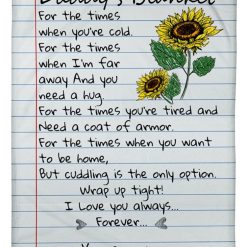 Daddy's Blanket
For the times
when you're cold.
For the times
when I'm far
away And you
need a hug.
For the times you're tired and
Need a coat of armor.
For the times when you want
to be home,
But cuddling is the only option.
Wrap up tight!
I Love you always...
Forever...